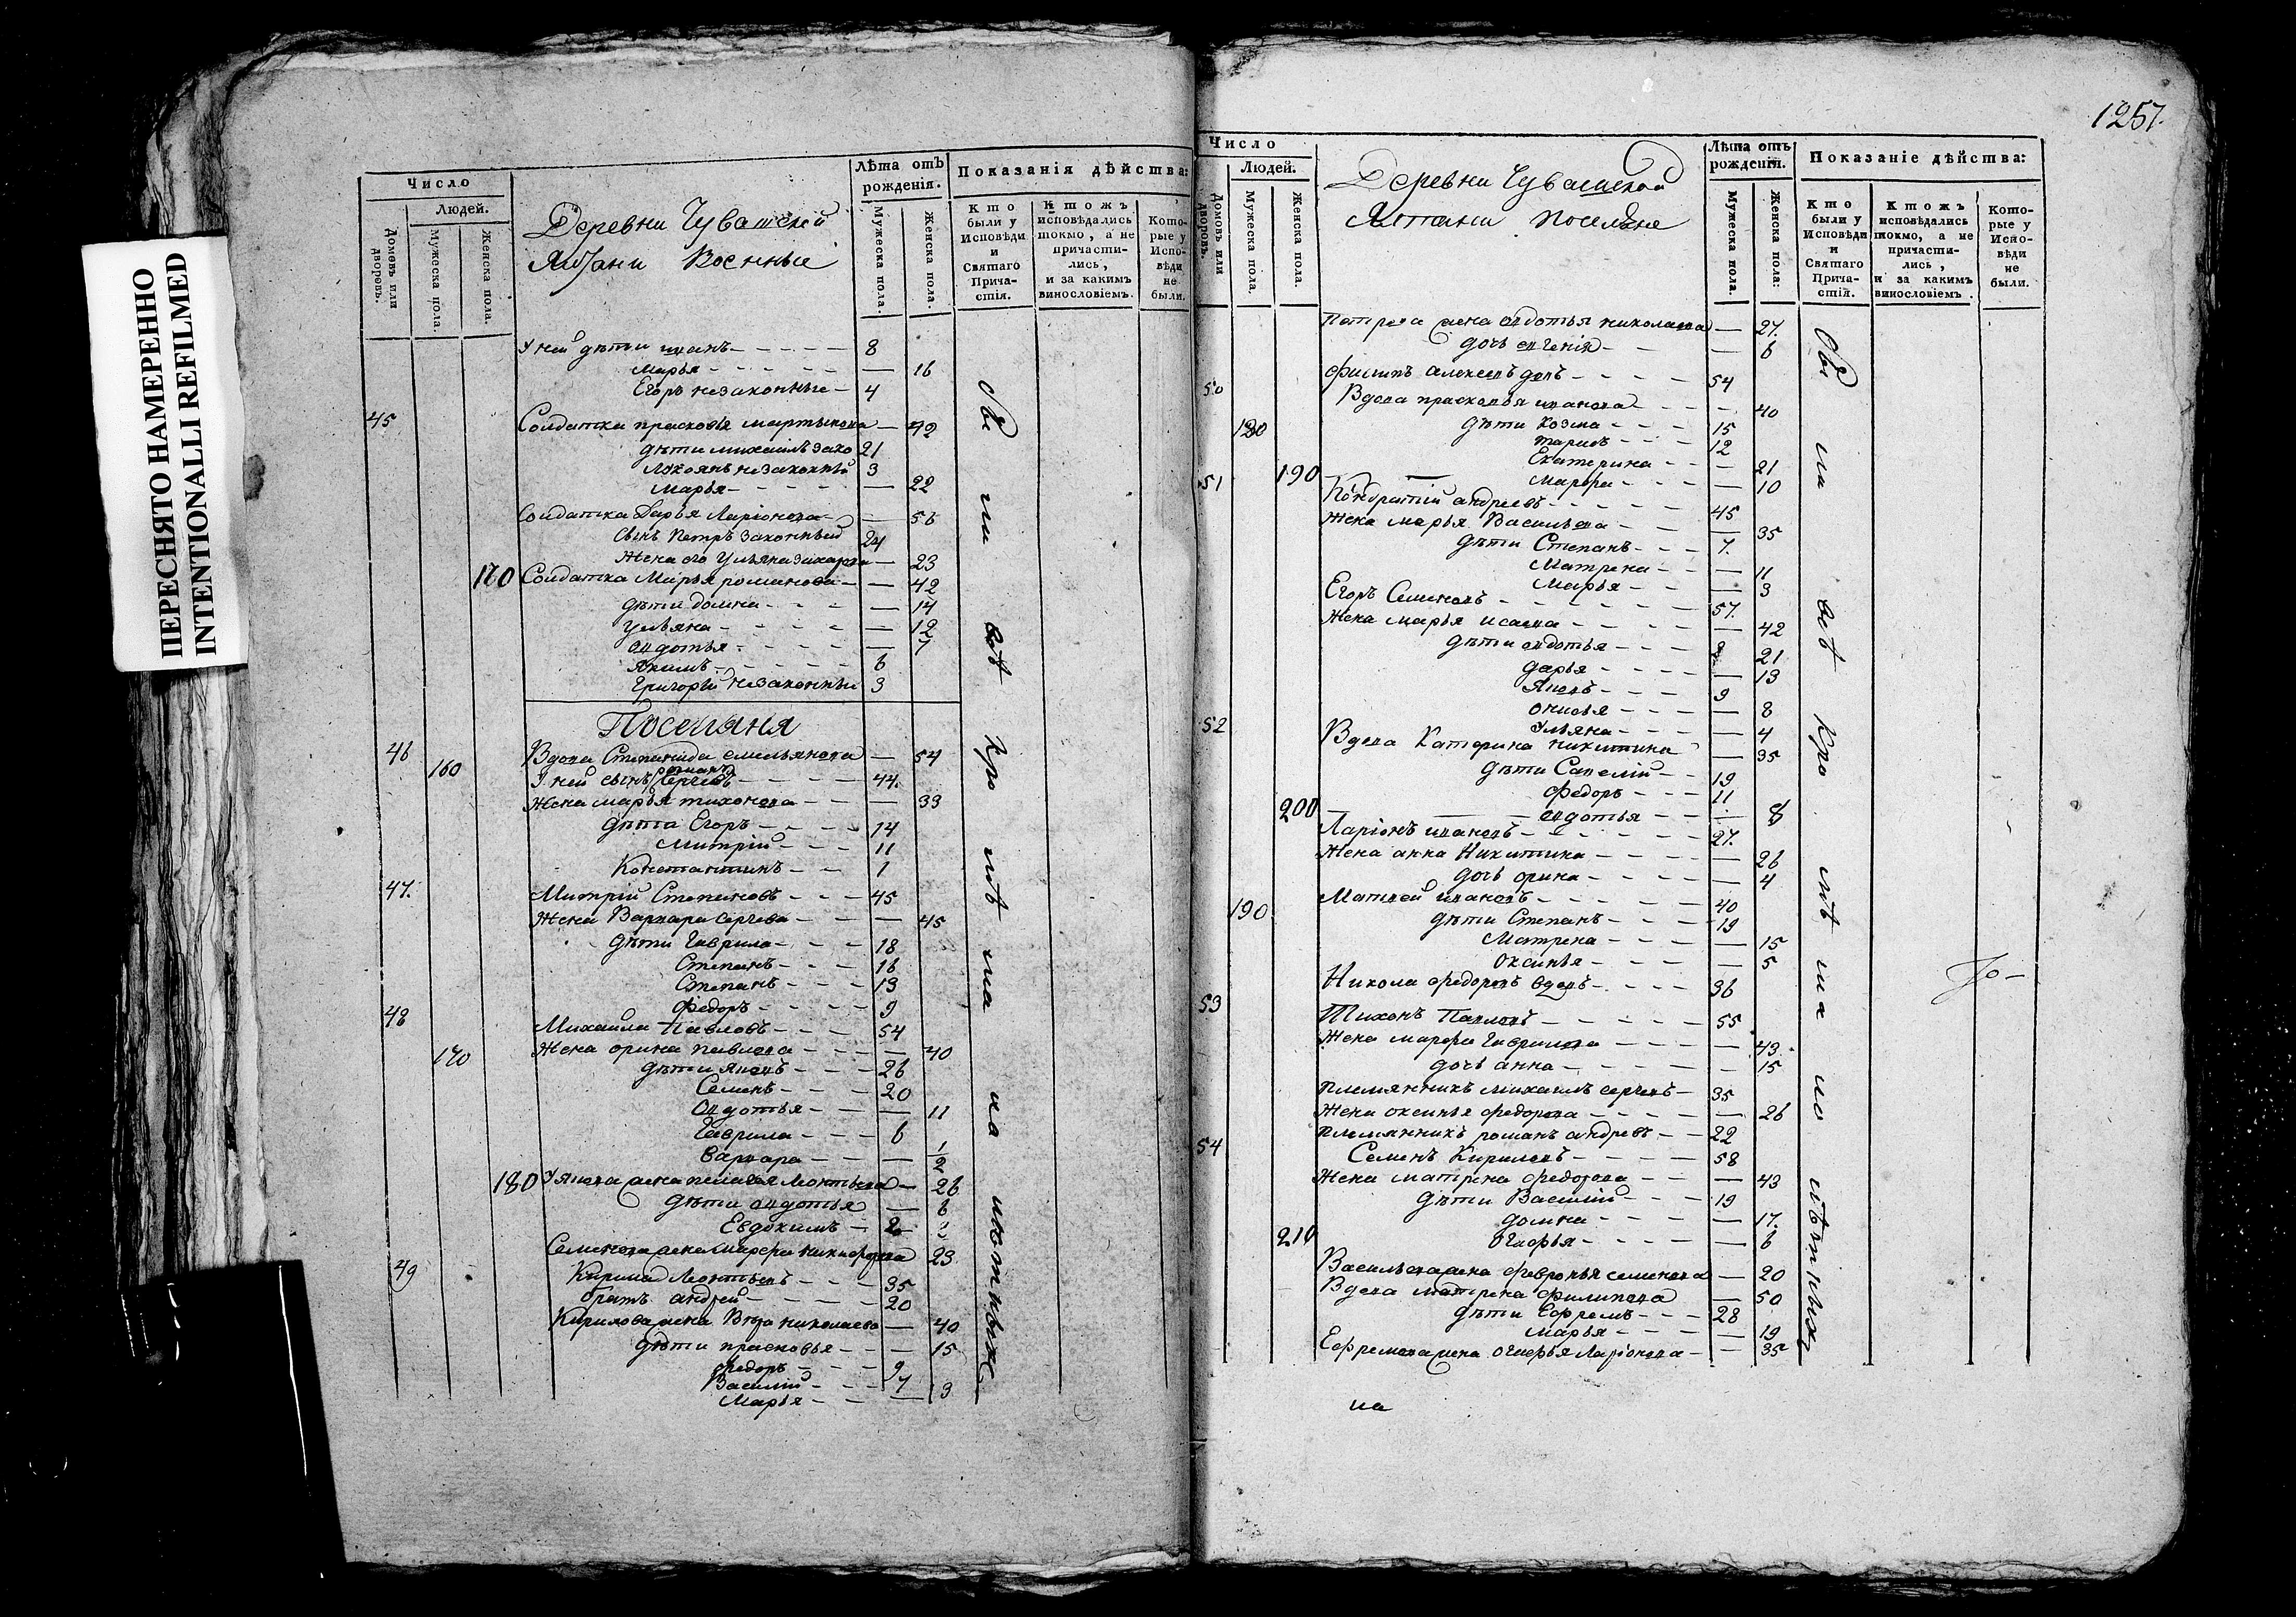 ПЕРЕСНЯТО НАМЕРЕННО
INTENTIONALLI REFILMED
Число
Людей.
Домовъ или дворовъ.
Мужеска пола.
Женска пола.
Деревни Чувашской
Янтани Военные
Лѣта отъ рожденія.
Мужеска пола.
Женска пола.
Показанія дѣйства:
Кто были у Исповѣди и Святаго Причастія.
Ктожъ исповѣдались токмо, а не причастились, и за какимъ винословіемъ.
Которые у Исповѣди не были.
У ней дѣти иванъ - - - - - 8
Марья - - - - - — 16
Егоръ незаконные - 4
45 Солдатка прасковья мартынова — 42
дѣти михаилъ зако 21
Лукоянъ незаконный 3
Марья - - - - - — 22
Солдатка Дарья Ларіонова - — 56
Сынъ Петръ законный 24
Жена его Ульяна захарова — 23
170 Солдатка Марья романова - — 42
дѣти домна - - - — 14
Ульяна - - - - - — 12
овдотья - - - - - — 7
Якимъ - - - - - - 6
Григорій незаконны 3
Поселяня
46 Вдова Степанида емельянова — 54
160 У ней сынъ романъ Сергеевъ - - - - 44.
Жена марья тихонова - - — 33
дѣти Егоръ - - - - 14
Митрій - - - 11
Констатинъ - - 1
47. Митрій Степановъ - - - 45
Жена Варвара Сергева - - — 45
дѣти Гаврила - - - 18
Степанъ - - - 16
Степанъ - - - 13
Федоръ - - - - 9
48 Михайла Павловъ - - - 54
170 Жена орина павлова - - - — 40
дѣти Яковъ - - - 26
Семенъ - - - 20
Овдотья - - — 11
Гаврила - - - 6
Варвара - - - — 1/2
180 У якова жена пелагея Леонтьева - — 26
дѣти овдотья — 6
Евдокимъ - 2
Семенова жена марфа никифорова 23
49 Кирила Леонтьевъ - - - 35
братъ андрей - - - - 20
Кирилова жена Вера николаева — 40
дѣти прасковья - - — 15
федоръ - - - - 9
Василій - - - 7
Марья - - — 3
1257.
Число
Людей.
Домовъ или дворовъ.
Мужеска пола.
Женска пола.
Деревни Чувашской
Янтани поселяне
Лѣта отъ рожденія.
Мужеска пола.
Женска пола:
Показаніе дѣйства:
Кто были у Исповѣди и Святаго Причастія.
Ктожъ исповѣдались токмо, а не причастились, и за какимъ винословіемъ.
Которые у Исповѣди не были.
Петрова жена овдотья николаева — 27.
дочь евгенія - - — 6
50 Филипъ алексеевъ - - - - 54
Вдова прасковья иванова - - - - 40
180 дѣти Козма - - - 15
12
Екатерина - - - 21
190 Марфа - - - — 10
51 Кондратій андреевъ - - - - - 45
Жена марья Васильева - - - — 35
дѣти Степанъ - - - 7.
Матрена - - - — 11
Марья - - — 3
Егоръ Семеновъ - - - - - - 57.
Жена марья исаева - - - - — 42
дѣти овдотья - - - 21
дарья - - - — 13
Яковъ - - - 9
- - - — 8
Ульяна - - - — 4
52 Вдова Катерина никитина — 35
дѣти Савелій - - 19
Федоръ - - - 11
200 овдотья - - — 8
Ларіонъ ивановъ - - - - - 27.
Жена анна Никитина - - - — 26
дочь орина - - - - — 4
Матвей ивановъ - - - - - 40
190 дѣти Степанъ - - - - 19
Матрена - - - — 15
Оксинья - - - - — 5
Никола федоровъ вдовъ - - - - 36
53 Тихонъ Павловъ - - - - - 55
Жена марфа Гаврилова - - - — 43.
дочь анна - - - - - — 15
племянникъ михаилъ сергеевъ - 35
Жена оксинья федорова - - - - — 26
племянникъ романъ андревъ - - 22
54 Семенъ Кириловъ - - - - 58
Жена матрена федорова - - — 43
дѣти Василій - - - 19
домна - - - - — 17.
210 - - - - — 6
Васильева жена февронья семенова — 20
Вдова матрена Филипова — 50
дѣти Ефремъ - - - 28
марья - - - - — 19
Ефремова жена Ларіонова - — 35
на